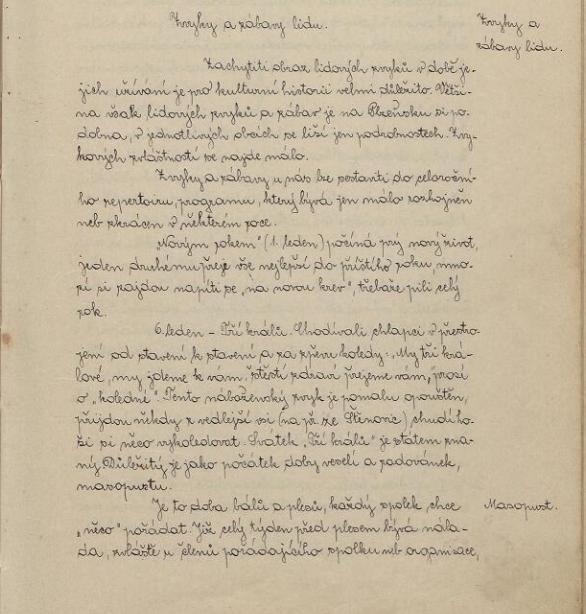 Zvyky a zábavy lidu.
Zvyky a
zábavy lidu.
Zachytiti obraz lidových zvyků v době je-
jich užívání je pro kulturní historii velmi důležito. Větši-
na však lidových zvyků a zábav je na Plzeňsku si po-
dobna, v jednotlivých obcích se liší jen podrobnostech. Zvy-
kových zvláštností se najde málo.
Zvyky a zábavy u nás lze sestaviti do celoroční-
ho repertoiru, programu, který bývá jen málo rozhojněn
neb zkrácen v některém roce.
„Novým rokem" (1. leden) počíná prý nový život,
jeden druhému přeje vše nejlepší do příštího roku, mno-
zí si zajdou napíti se „na novou krev", třebaže pili celý
rok.
6. leden – Tří králů. Chodívali chlapci v přestro-
jení od stavení k stavení a za zpěvu koledy: „My tři krá-
lové, my jdeme k vám, štěstí zdraví přejeme vám", prosí
o „koledu". Tento náboženský zvyk je pomalu opouštěn,
přijdou někdy z vedlejší vsi (na př. ze Štěnovic) chudí ho-
ši si něco vykoledovat. Svátek „Tří králů" je státem zna-
ný. Důležitý je jako počátek doby veselí a radovánek,
masopustu.
Je to doba bálů a plesů, každý spolek chce
Masopust.
„něco" pořádat. Již celý týden před plesem bývá nála-
da, zvláště u členů pořádajícího spolku neb organisace,